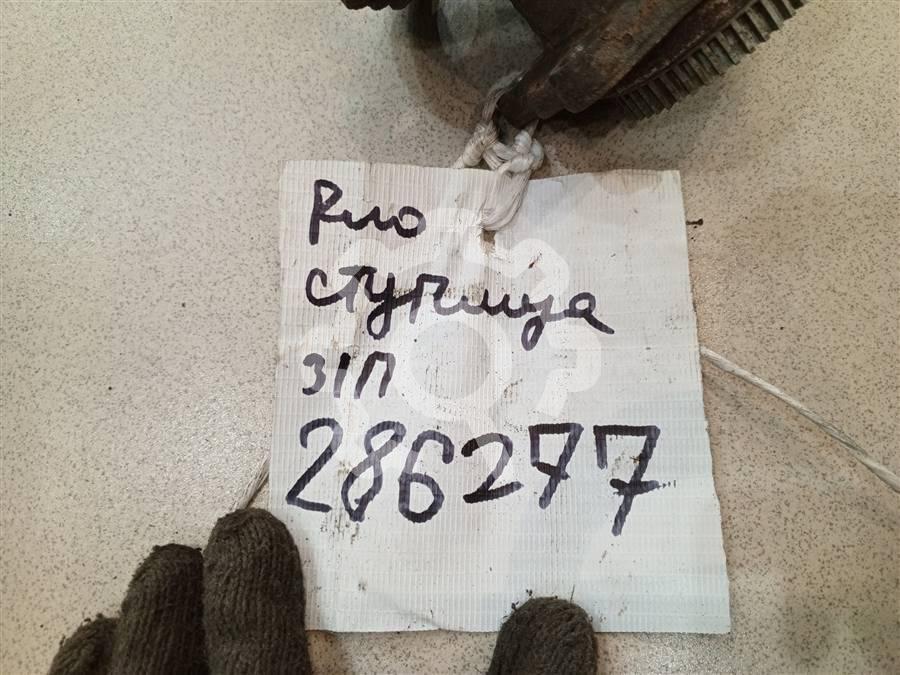 Рио
ступица
з/п
286277